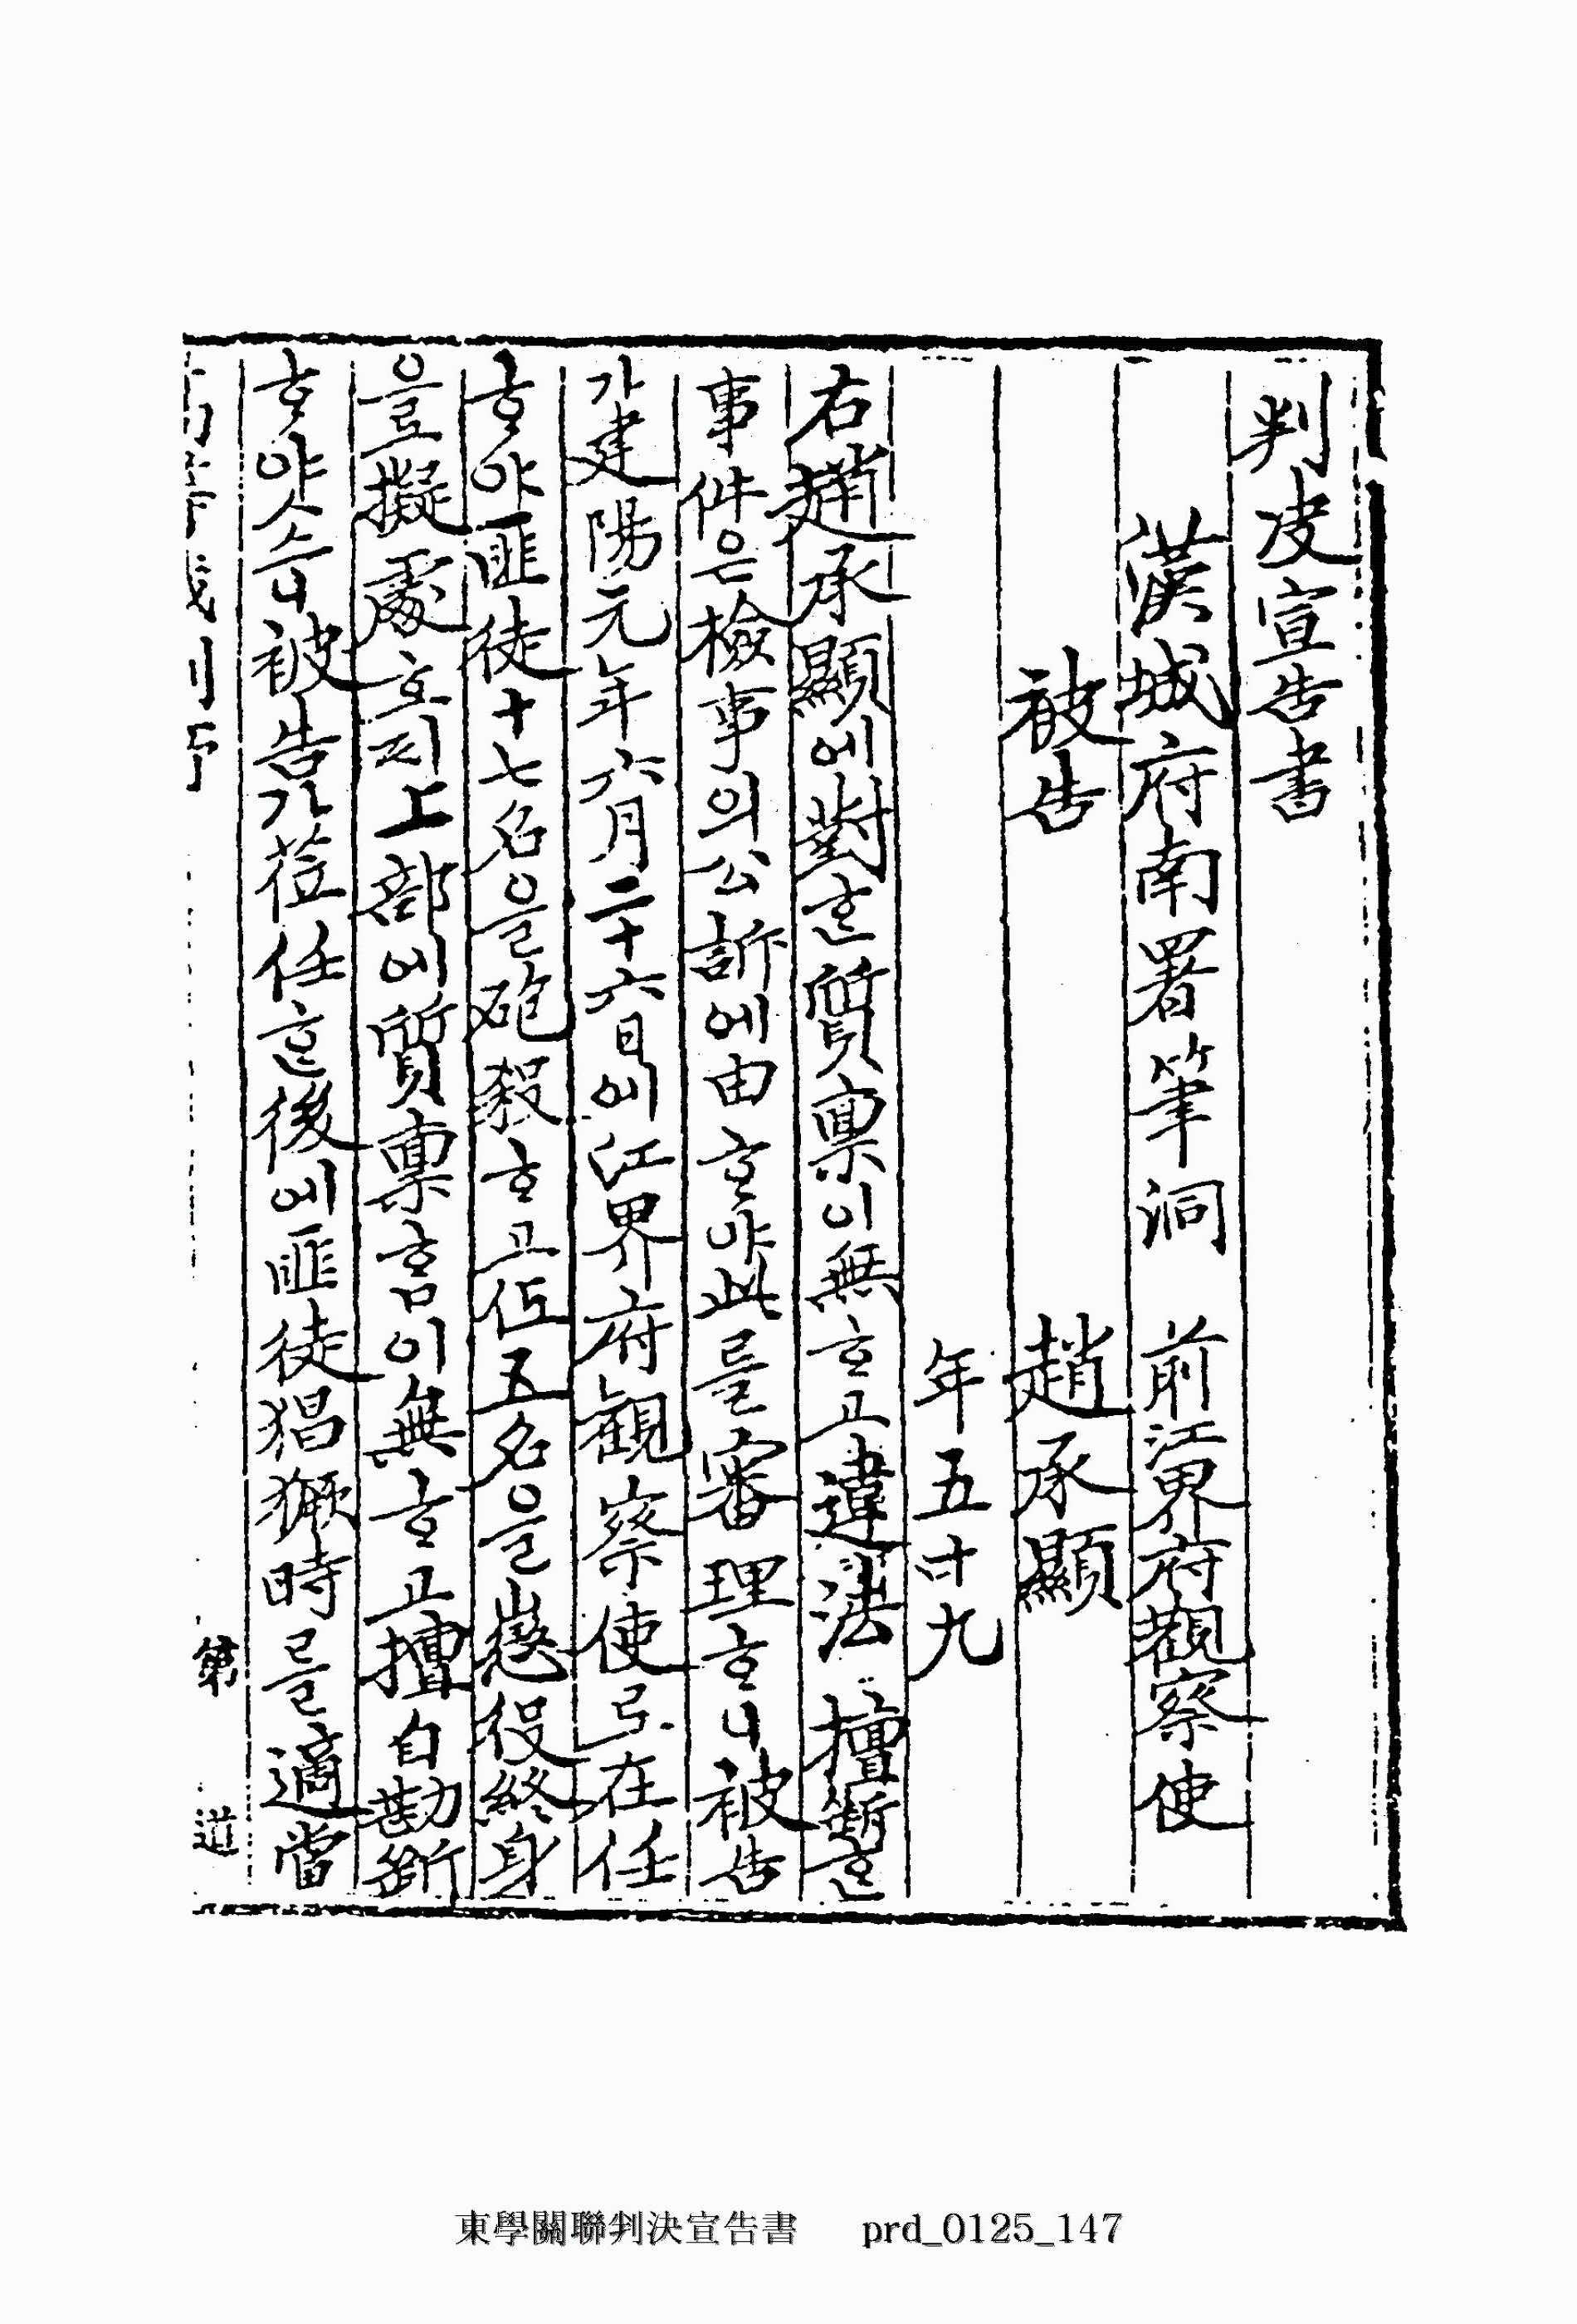 判决宣告書
漢城府南署筆洞　前江界府觀察使
被告　趙承顯
年五十九
右趙承顯에對ᄒᆞᆫ質稟이無ᄒᆞ고違法擅斷ᄒᆞᆫ
事件은檢事의公訴에由ᄒᆞ야此를審理ᄒᆞ니被告
가建陽元年六月二十六日에江界府觀察使로在任
ᄒᆞ야匪徒十七名을砲殺ᄒᆞ고五名을懲役終身
으로擬處ᄒᆞ되上部에質稟ᄒᆞᆷ이無ᄒᆞ고擅自勘斷
ᄒᆞ야스니被告가莅任ᄒᆞᆫ後에匪徒猖獗時를適當
第　道
東學關聯判決宣告書　prd_0125_147